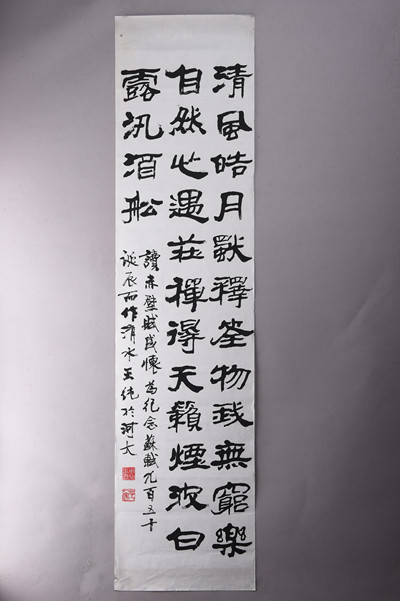 清風皓月釋筌物我無窮樂
自然心遇莊禪得天籟煙波白
露汎酒舩
讀赤壁賦感懷為紀念蘇軾九百五十
誕辰而作清水王純於河大